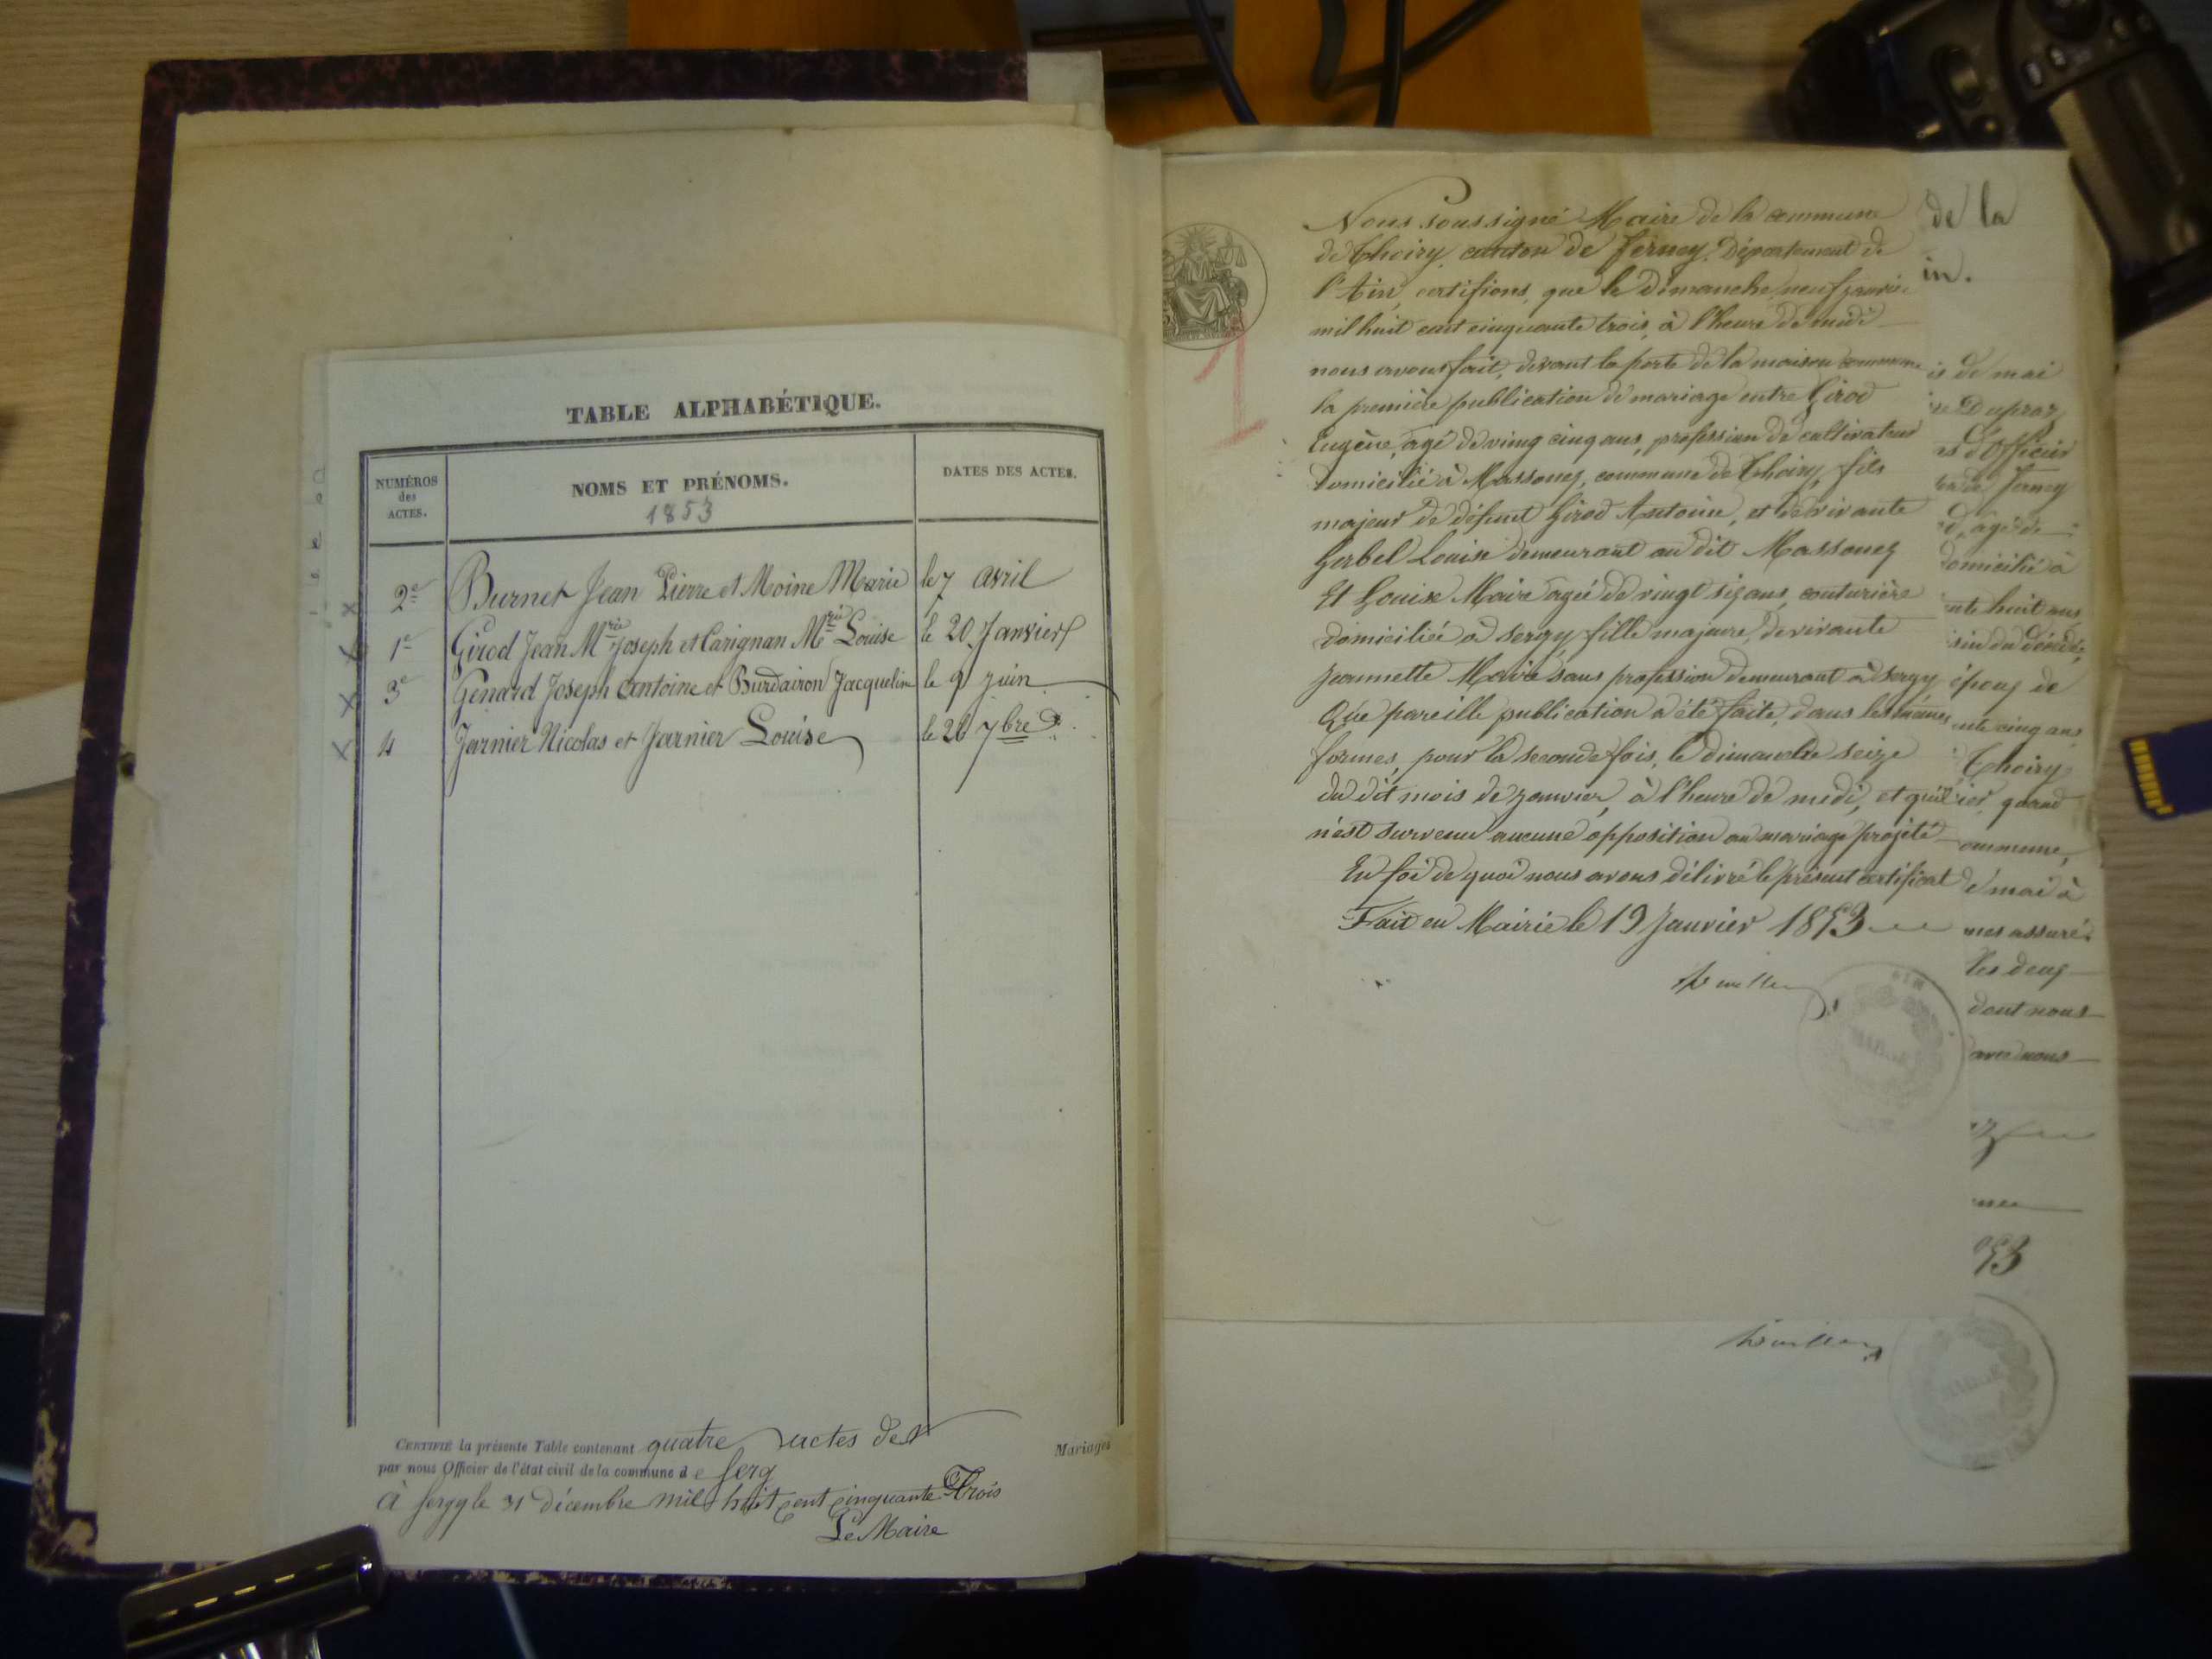 TABLE ALPHABÉTIQUE.
NUMÉROS des ACTES.
NOMS ET PRÉNOMS.
1853
DATES DES ACTES.
2e Burnet Jean Pierre et Moine Marie le 7 avril
1e Girod Jean Mrie Joseph et Carignan Mrie Louise le 20 Janvier
3e Genard Joseph Antoine et Burdairon Jacqueline le 9 juin
4 Jarnier Nicolas et Jarnier Louise le 26 7bre
CERTIFIÉ la présente Table contenant quatre actes de Mariages
par nous Officier de l'état civil de la commune de Serg
à Sergy le 31 décembre mil huit cent cinquante Trois
Le Maire
Nous soussigné Maire de la commune
de Thoiry canton de Ferney, Département de
l'Ain, certifions, que le dimanche neuf janvier
mil huit cent cinquante trois, à l'heure de midi
nous avons fait, devant la porte de la maison commune
la première publication de mariage entre Girod
Eugène, agé de vingt cinq ans, profession de cultivateur
domicilié à Massoney, commune de Thoiry, fils
majeur de défunt Girod Antoine, et de vivante
Gerbel Louise demeurant au dit Massoney
Et Louise Maire agée de vingt six ans, couturière
domiciliée à Sergy, fille majeure de vivante
Jeannette Maire sans profession demeurant à Sergy
Que pareille publication a été faite, dans les mêmes
formes, pour la seconde fois, le dimanche seize
du dit mois de janvier, à l'heure de midi, et qu'il
n'est survenu aucune opposition au mariage projeté
En foi de quoi nous avons délivré le présent certificat
Fait en Mairie le 19 Janvier 1853
de la
in.
de mai
Dupraz
d'Officier
de Ferney
agé de
domicilié à
huit ans
du décédé,
époux de
cinq ans
Thoiry
quand
commune,
de mai à
assuré
les deux
dont nous
avec nous
53